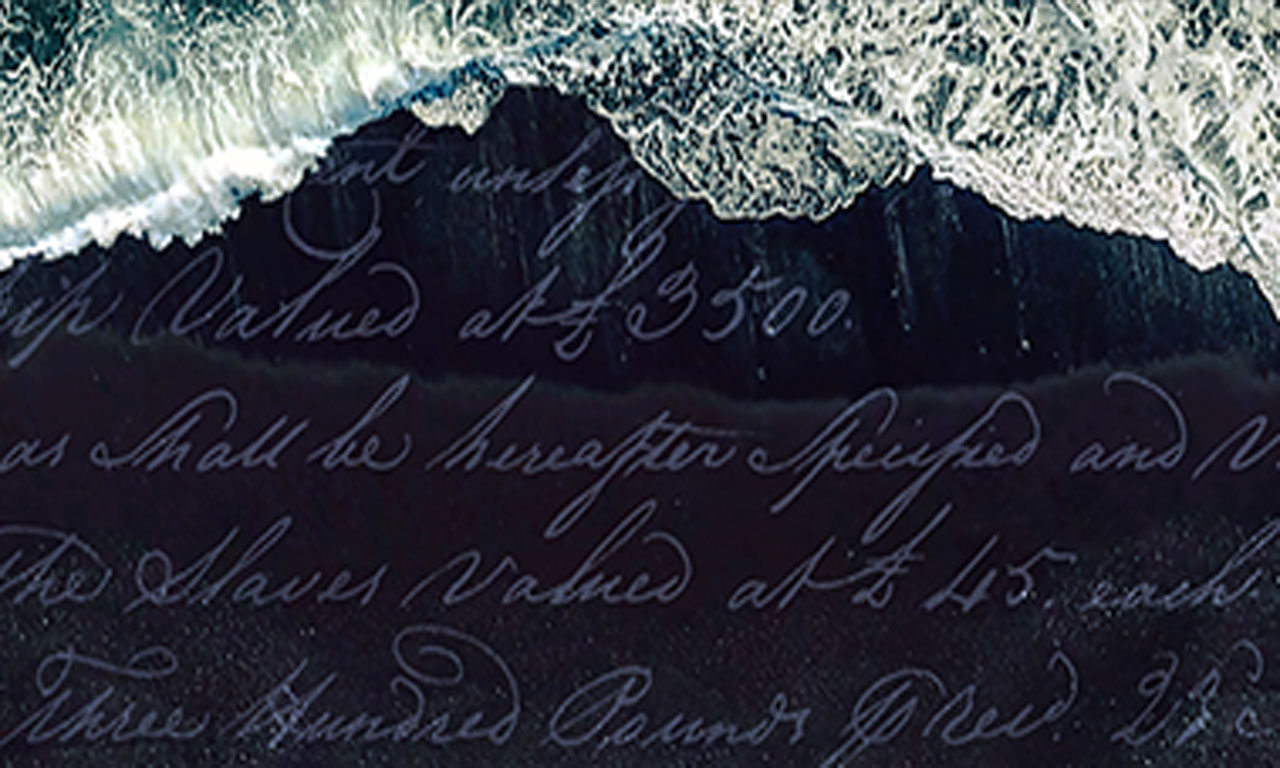 Valued at £3500.
as Shall be hereafter Specified and
The Slaves Valued at £45. each.
Three Hundred Pounds